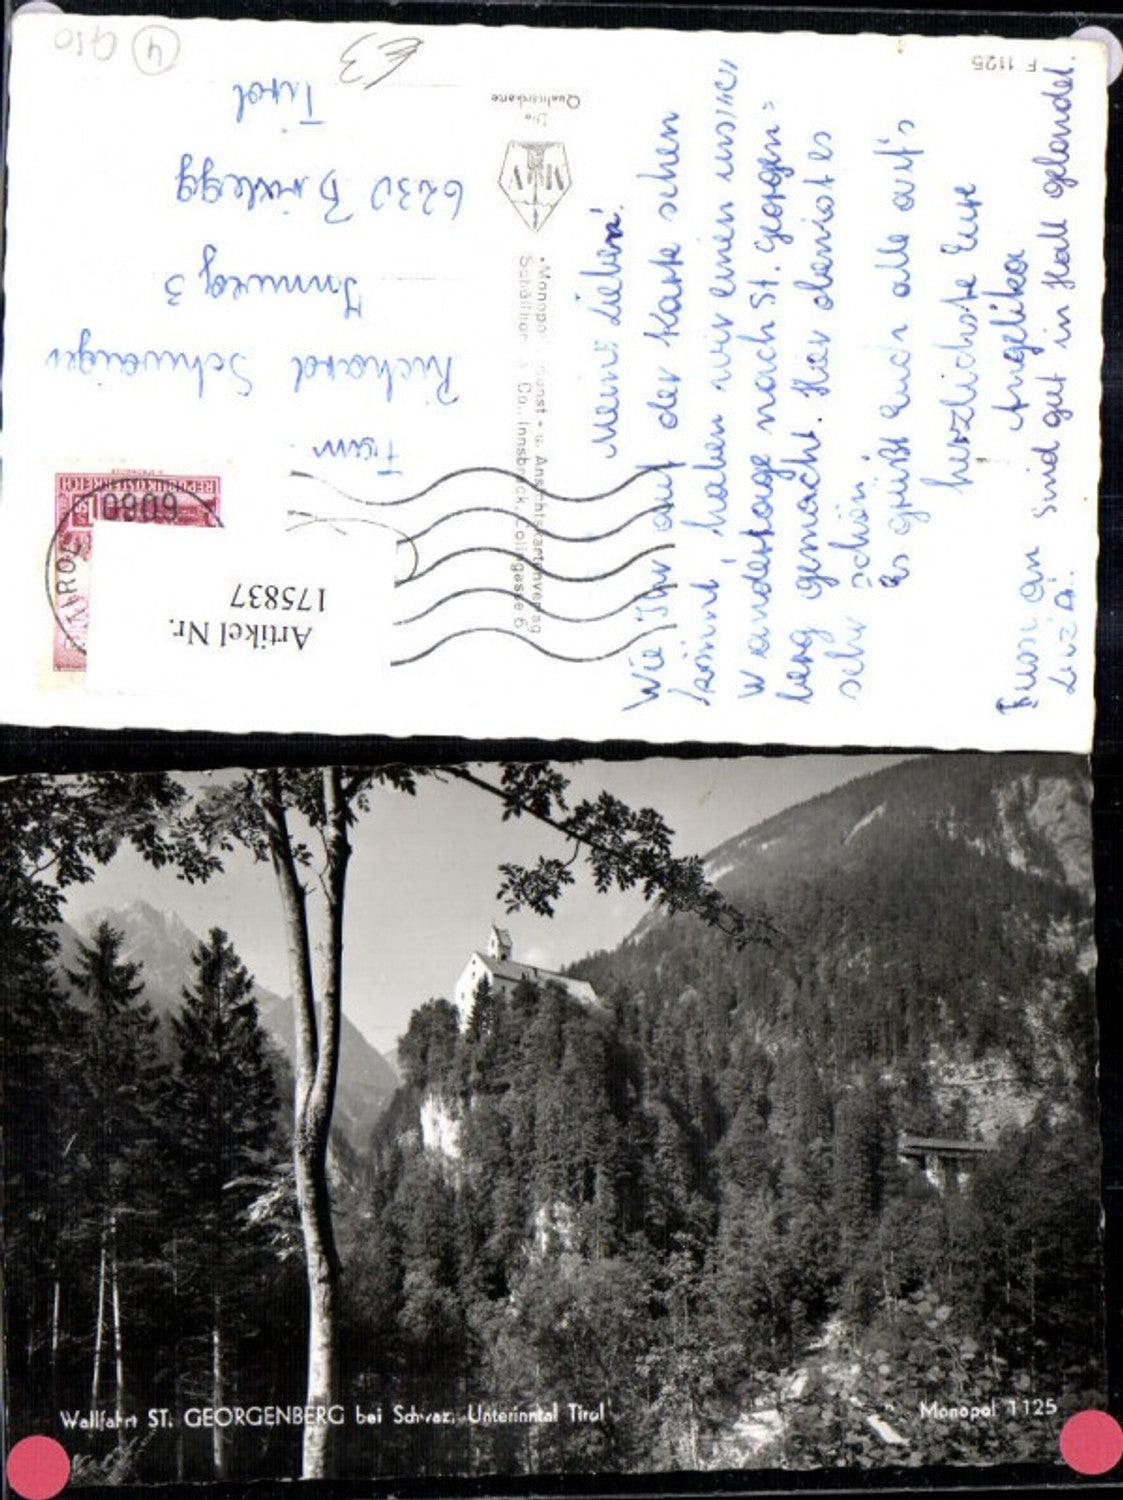 ④ Q50
€3
F 1125
Die
Qualitätskarte
"Monopol" Kunst- u. Ansichtskartenverlag
Schöllhorn & Co., Innsbruck, Colingasse 6
REPUBLIK ÖSTERREICH
6060
TIROL
Artikel Nr.
175837
Richard Schwaiger
Innweg 3
6230 Brixlegg
Tirol
Meine Lieben!
Wie Ihr auf der Karte sehen
könnt, haben wir einen unsrer
Wandertage nach St. Georgen=
berg gemacht. Hier oben ist es
sehr schön!
Es grüßt Euch alle auf's
herzlichste Eure
Angelika
sind gut in Hall gelandet.
Wallfahrt ST. GEORGENBERG bei Schwaz, Unterinntal Tirol
Monopol 1125